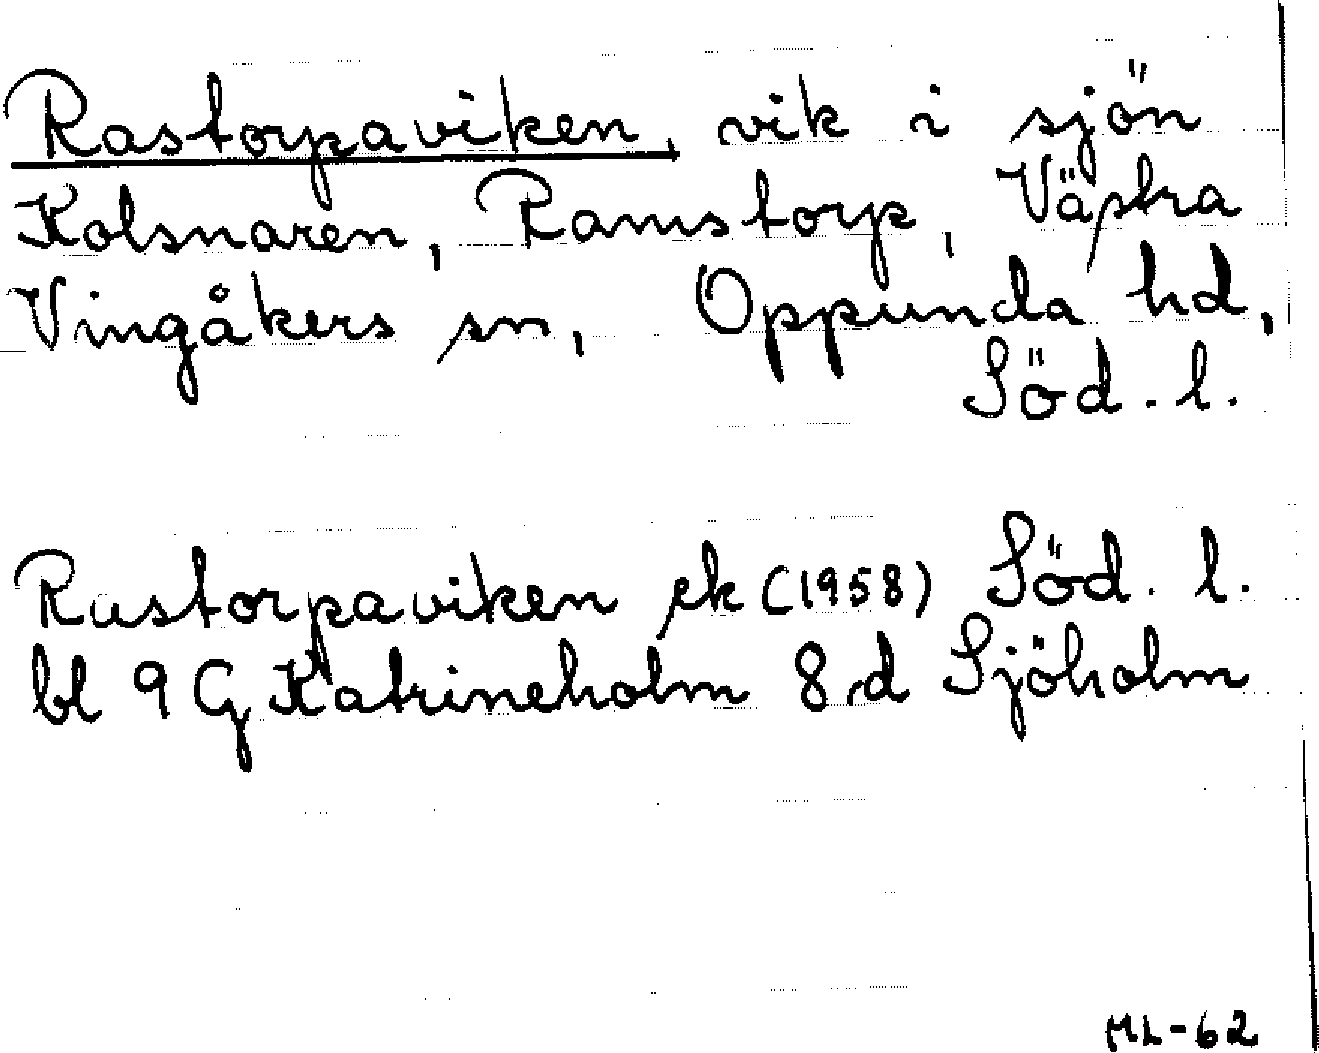 Rastorpaviken, vik i sjön
Kolsnaren, Ramstorp, Västra
Vingåkers sn, Oppunda hd,
Söd. l.
Rastorpaviken ek (1958) Söd. l.
bl 9 G Katrineholm 8 d Sjöholm
ML-62